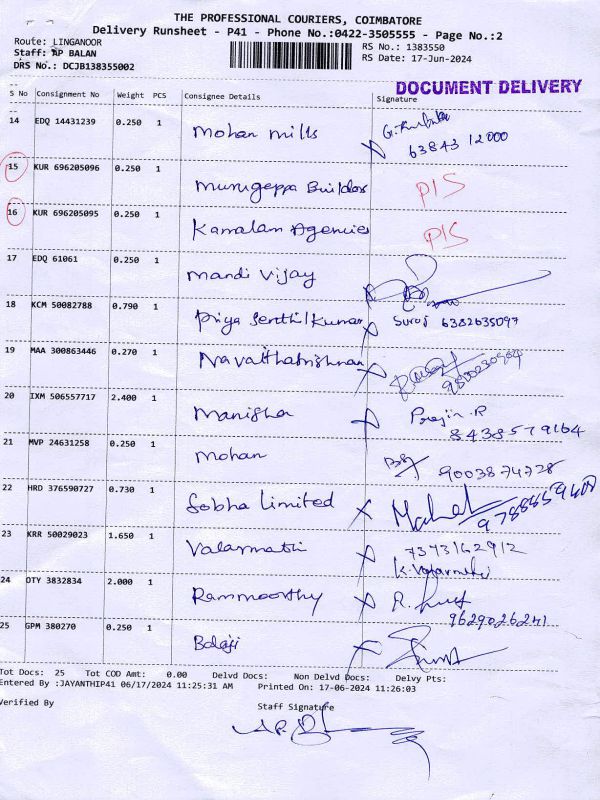 THE PROFESSIONAL COURIERS, COIMBATORE
Delivery Runsheet - P41 - Phone No.:0422-3505555 - Page No.:2
Route: LINGANOOR
Staff: AP BALAN
DRS No.: DCJB138355002
RS No.: 1383550
RS Date: 17-Jun-2024
DOCUMENT DELIVERY
S No Consignment No Weight PCS Consignee Details Signature
14 EDQ 14431239 0.250 1 Mohan mills 63843 12000
15 KUR 696205096 0.250 1 Murugeppa Builders P/S
16 KUR 696205095 0.250 1 Kamalam Agencies P/S
17 EDQ 61061 0.250 1 Mandi Vijay
18 KCM 50082788 0.790 1 Priya Senthil Kumar Suroj 6382635097
19 MAA 300863446 0.270 1 Navaithakrishnan
20 IXM 506557717 2.400 1 Manisha Prejin.R
8438579164
21 MVP 24631258 0.250 1 Mohan 9003874728
22 HRD 376590727 0.730 1 Sobha Limited
23 KRR 50029023 1.650 1 Valarmathi 7373162912
K. Valarmathi
24 OTY 3832834 2.000 1 Rammoorthy
9629026241
25 GPM 380270 0.250 1 Balaji
Tot Docs: 25 Tot COD Amt: 0.00 Delvd Docs: Non Delvd Docs: Delvy Pts:
Entered By :JAYANTHIP41 06/17/2024 11:25:31 AM Printed On: 17-06-2024 11:26:03
Verified By Staff Signature